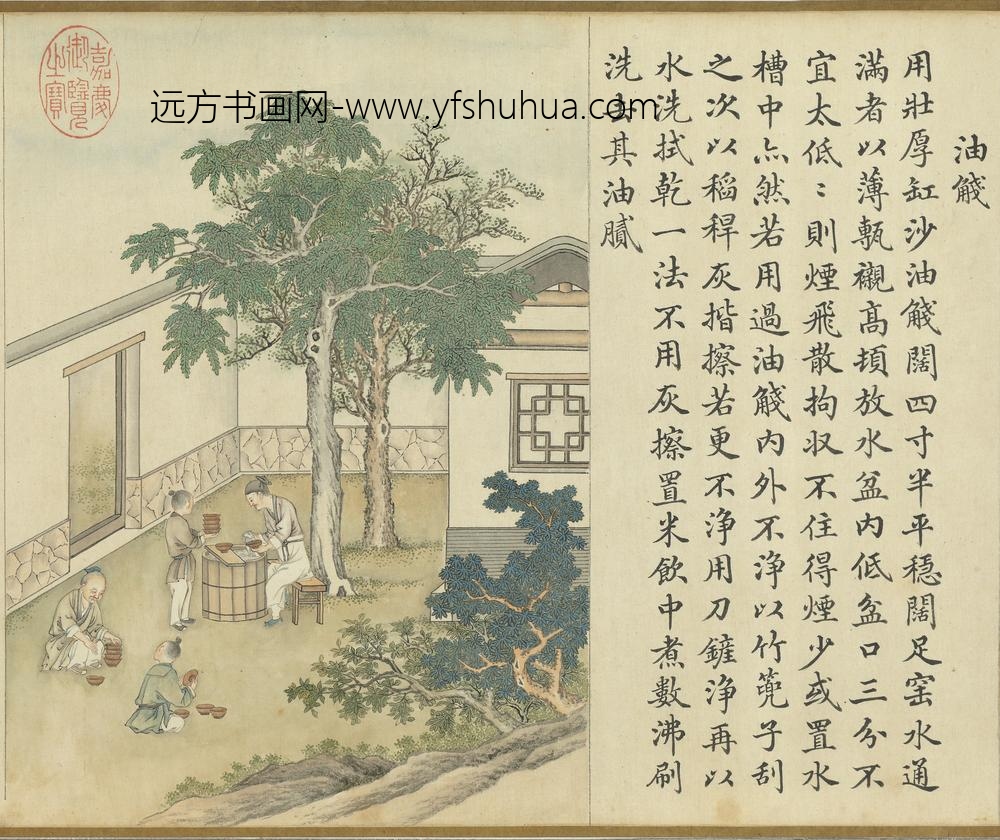 油醆
用壯厚缸沙油醆闊四寸半平穩闊足窑水通
滿者以薄甎襯高頓放水盆内低盆口三分不
宜太低〻則煙飛散拘収不住得煙少或置水
槽中亦然若用過油醆内外不淨以竹篦子刮
之次以稻稈灰揩擦若更不淨用刀鏟淨再以
水洗拭乾一法不用灰擦置米飲中煮數沸刷
洗去其油膩
嘉慶御覽之寶
远方书画网-www.yfshuhua.com